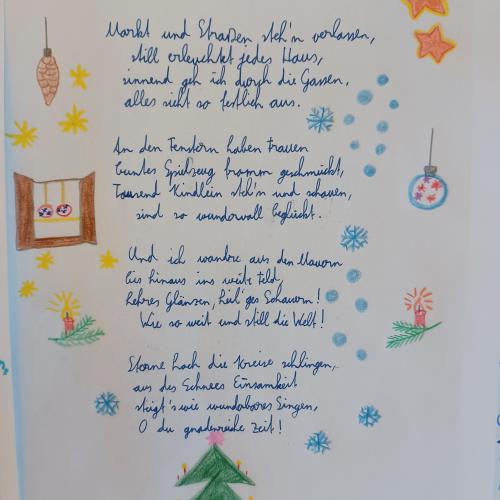 Markt und Straßen steh'n verlassen,
still erleuchtet jedes Haus,
sinnend geh ich durch die Gassen,
alles sieht so festlich aus.
An den Fenstern haben Frauen
buntes Spielzeug fromm geschmückt,
Tausend Kindlein steh'n und schauen,
sind so wundervoll beglückt.
Und ich wandre aus den Mauern
bis hinaus ins weite Feld,
hehres Glänzen, heil'ges Schauern!
Wie so weit und still die Welt!
Sterne hoch die Kreise schlingen,
aus des Schnees Einsamkeit
steigt's wie wunderbares Singen,
O du gnadenreiche Zeit!